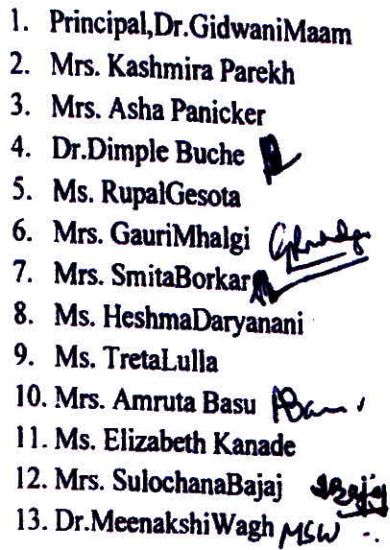 1. Principal,Dr.GidwaniMaam
2. Mrs. Kashmira Parekh
3. Mrs. Asha Panicker
4. Dr.Dimple Buche
5. Ms. RupalGesota
6. Mrs. GauriMhalgi
7. Mrs. SmitaBorkar
8. Ms. HeshmaDaryanani
9. Ms. TretaLulla
10. Mrs. Amruta Basu
11. Ms. Elizabeth Kanade
12. Mrs. SulochanaBajaj
13. Dr.MeenakshiWagh MSW